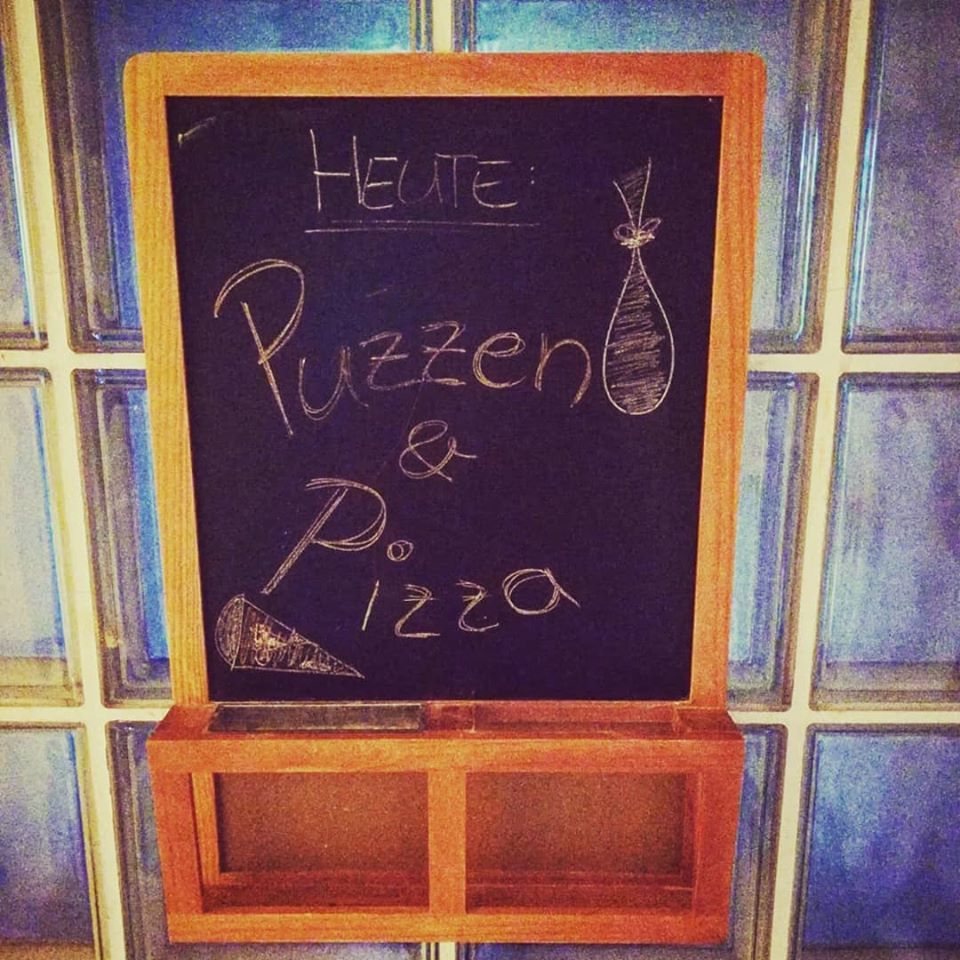 HEUTE:
Puzzen
&
Pizza